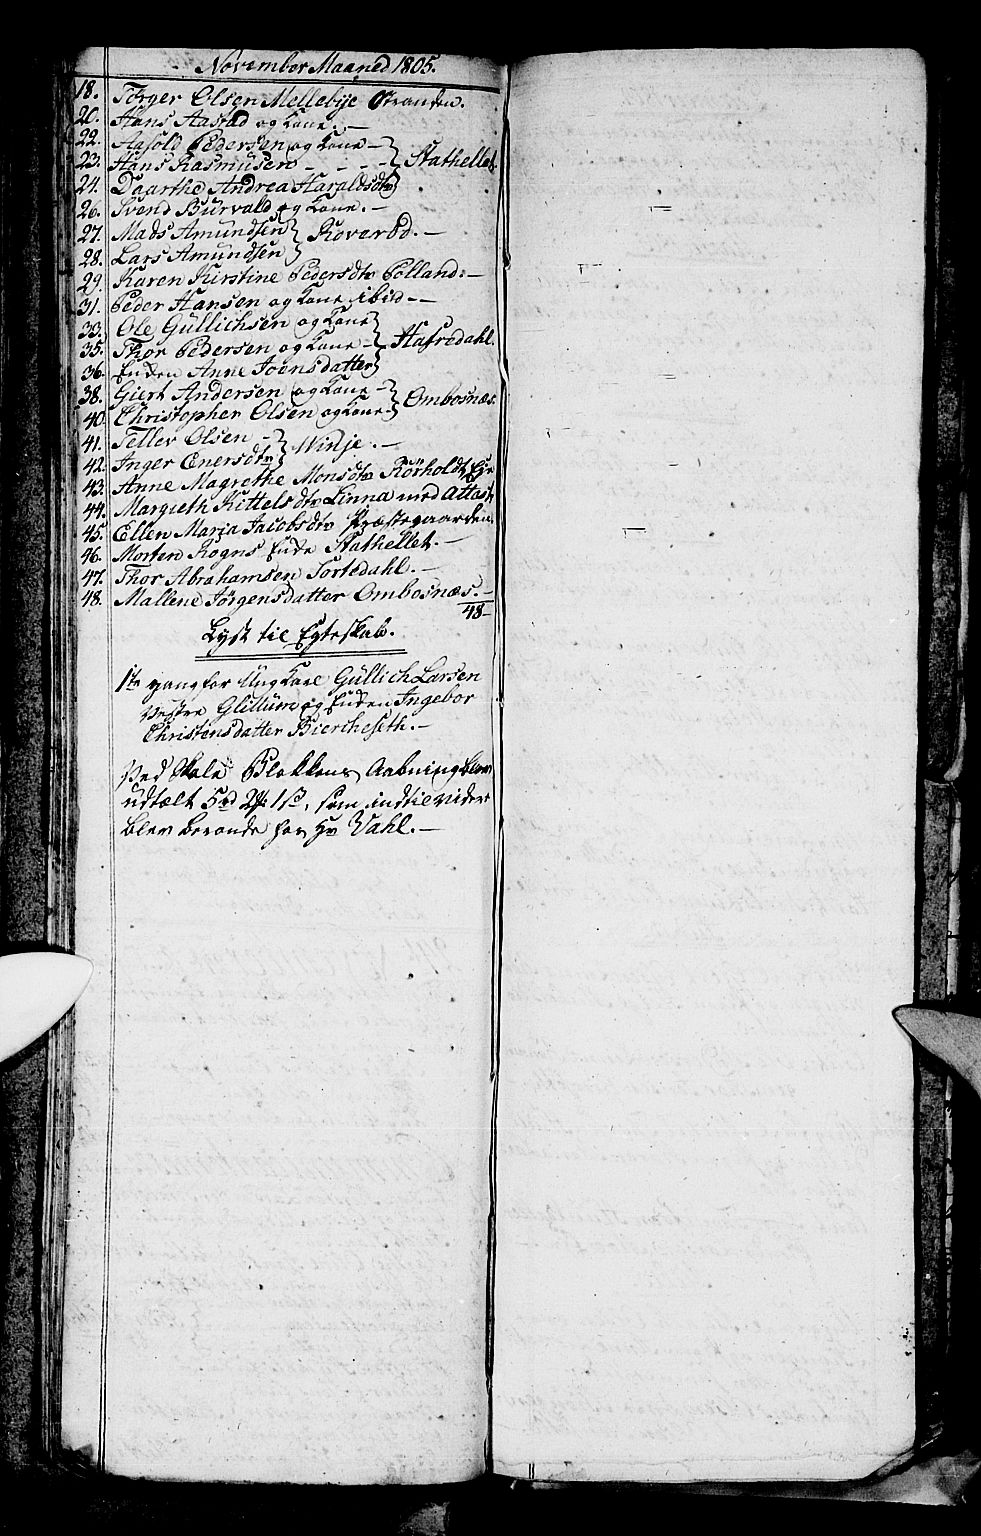 November Maaned 1805.
18. Törger Olsen Mellebye Stranden.
20. Hans Aastad og Kone. —
22. Aasold Pedersen og Kone —
23. Hans Rasmusen - - - - } Stathellet
24. Daarthe Andrea Haraldsdtr
26. Svend Burvald og Kone. —
27. Mads Amundsen } Roveröd. —
28. Lars Amundsen
29. Karen Kirstine Pedersdtr Tolland: —
31. Peder Hansen og Kone ibid - —
33. Ole Güllichsen og Kone
35. Thor Pedersen og Kone — } Hafredahl.
36. Enken Anne Joensdatter
38. Giert Andersen og Kone - } Ombosnæs.
40. Christopher Olsen og Kone -
41. Tellev Olsen - } Winje. —
42. Inger Enersdtr
43. Anne Magrethe Monsdtr Rörholdt Eje
44. Margieth Kittelsdtr Linna med Attest
45. Ellen Maria Jacobsdtr Præstegaarden.
46. Morten Rogns Enke Stathellet. —
47. Thor Abrahamsen Tortedahl. —
48. Mallene Jörgensdatter Ombosnæs. —
48 —
Lyst til Egteskab.
1te gang for Ung Karl Güllich Larsen
Vestre Glittum og Enken Ingebor
Christensdatter Bierkeseth. —
Ved Skole Blokkens Aabning blev
udtælt 5rd 2 1s, som indtil videre
blev beroende hos Hr Vahl. —